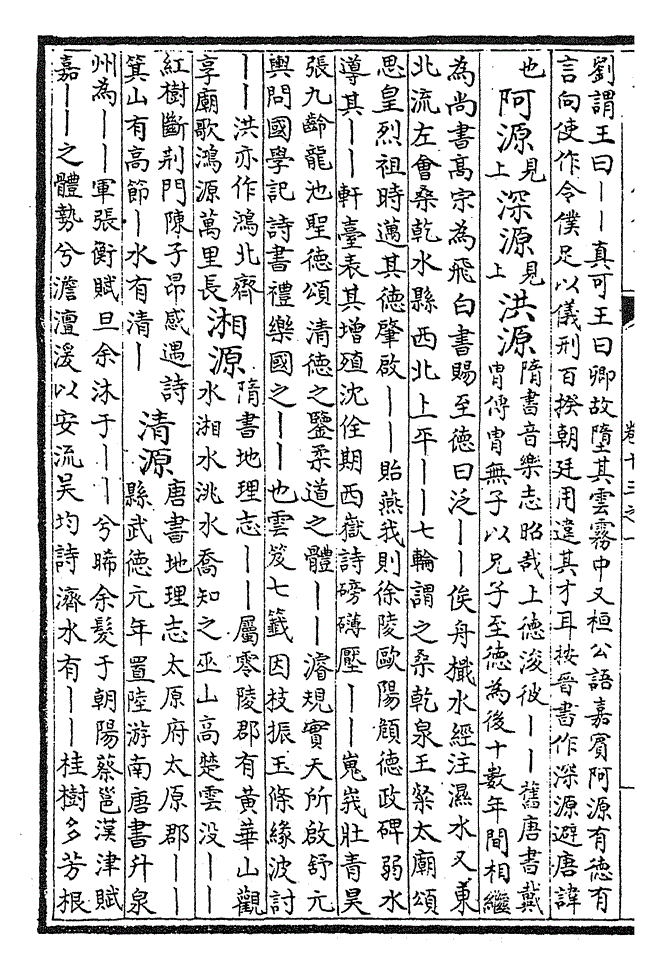 劉謂王曰——真可王曰卿故墮其雲霧中又桓公語嘉賓阿源有德有
言向使作令僕足以儀刑百揆朝廷用違其才耳按晉書作深源避唐諱
也
阿源
見上
深源
見上
洪源
隋書音樂志昭哉上德浚彼——舊唐書戴
胄傳胄無子以兄子至德為後十數年間相繼
為尚書高宗為飛白書賜至德曰泛——俟舟檝水經注濕水又東
北流左會桑乾水縣西北上平——七輪謂之桑乾泉王粲太廟頌
思皇烈祖時邁其德肇啟——貽燕我則徐陵歐陽頠德政碑弱水
導其——軒臺表其增殖沈佺期西嶽詩磅礴壓——嵬峩壯青昊
張九齡龍池聖德頌清德之鑒柔道之體——濬規實天所啟舒元
輿問國學記詩書禮樂國之——也雲笈七籤因技振玉條緣波討
——洪亦作鴻北齊
享廟歌鴻源萬里長
湘源
隋書地理志——屬零陵郡有黃華山觀
水湘水洮水喬知之巫山高楚雲沒——
紅樹斷荆門陳子昂感遇詩
箕山有高節—水有清—
清源
唐書地理志太原府太原郡——
縣武德元年置陸游南唐書升泉
州為——軍張衡賦旦余沐于——兮晞余髮于朝陽蔡邕漢津賦
嘉——之體勢兮澹澶湲以安流吳均詩濟水有——桂樹多芳根